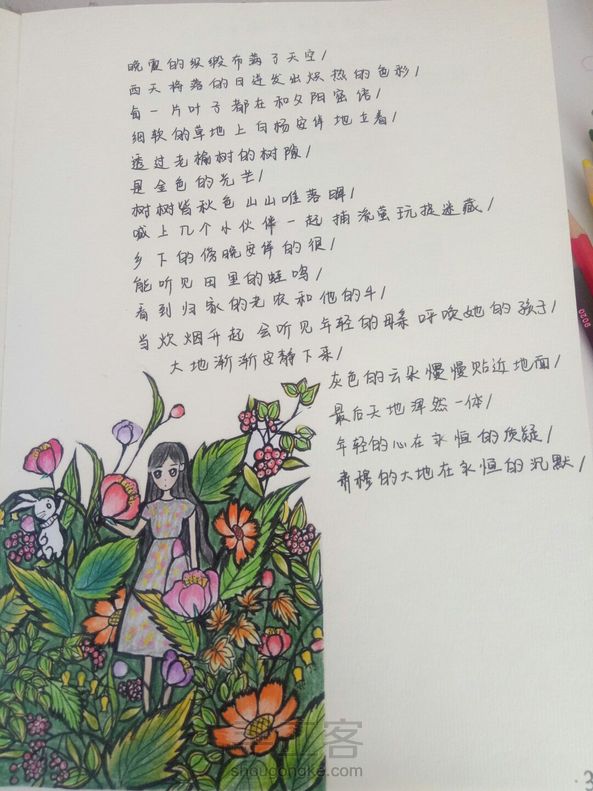 晚霞的绸缎布满了天空/
西天将落的日迸发出炽热的色彩/
每一片叶子都在和夕阳密语/
细软的草地上白杨安详地立着/
透过老榆树的树隙/
是金色的光芒/
树树皆秋色山山唯落晖/
喊上几个小伙伴一起捕流萤玩捉迷藏/
乡下的傍晚安详的很/
能听见田里的蛙鸣/
看到归家的老农和他的牛/
当炊烟升起 会听见年轻的母亲呼唤她的孩子/
大地渐渐安静下来/
灰色的云朵慢慢贴近地面/
最后天地浑然一体/
年轻的心在永恒的质疑/
肃穆的大地在永恒的沉默/
手工客
shougongke.com
9020